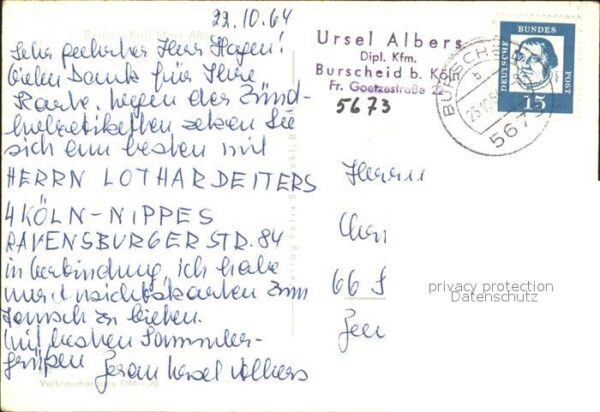 22.10.64
Berlin, Karl-Marx-Allee
Sehr geehrter Herr Hagen!
Vielen Dank für Ihre
Karte. Wegen der Zünd-
holzetiketten setzen Sie
sich am besten mit
HERRN LOTHAR DEITERS
4 KÖLN-NIPPES
RAVENSBURGER STR. 84
in Verbindung, ich habe
nur Ansichtskarten zum
Tausch zu bieten.
Mit besten Sammler-
grüßen
Ursel Albers
Verbraucherpreis DM
Verlag Felix Setecki, B
Ursel Albers
Dipl. Kfm.
Burscheid b. Köln
Fr. Goetzestraße 22
5673
DEUTSCHE BUNDESPOST
15
BURSCHEID
b
5673
Herrn
66 S
privacy protection
Datenschutz